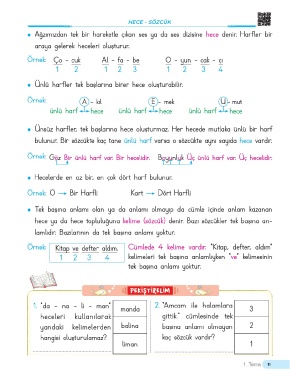 HECE - SÖZCÜK
• Ağzımızdan tek bir hareketle çıkan ses ya da ses dizisine hece denir. Harfler bir
araya gelerek heceleri oluşturur.
Örnek: Ço - cuk Al - fa - be O - yun - cak - çı
1 2 1 2 3 1 2 3 4
• Ünlü harfler tek başlarına birer hece oluşturabilir.
Örnek: A - lal E - mek U - mut
ünlü harf hece ünlü harf hece ünlü harf hece
• Ünsüz harfler, tek başlarına hece oluşturmaz. Her hecede mutlaka ünlü bir harf
bulunur. Bir sözcükte kaç tane ünlü harf varsa o sözcükte aynı sayıda hece vardır.
Örnek: Göz Bir ünlü harf var. Bir hecelidir. Boyunluk Üç ünlü harf var. Üç hecelidir.
• Hecelerde en az bir, en çok dört harf bulunur.
Örnek: O → Bir Harfli Kart → Dört Harfli
• Tek başına anlamı olan ya da anlamı olmayıp da cümle içinde anlam kazanan
hece ya da hece topluluğuna kelime (sözcük) denir. Bazı sözcükler tek başına an-
lamlıdır. Bazılarının da tek başına anlamı yoktur.
Örnek: Kitap ve defter aldım. Cümlede 4 kelime vardır. "Kitap, defter, aldım"
1 2 3 4 kelimeleri tek başına anlamlıyken "ve" kelimesinin
tek başına anlamı yoktur.
PEKİŞTİRELİM
1. "da - na - li - man"
heceleri kullanılarak
yandaki kelimelerden
hangisi oluşturulamaz?
manda
balina
liman
2. "Amcam ile halamlara
gittik." cümlesinde tek
başına anlamı olmayan
kaç sözcük vardır?
3
2
1
1. Tema 11